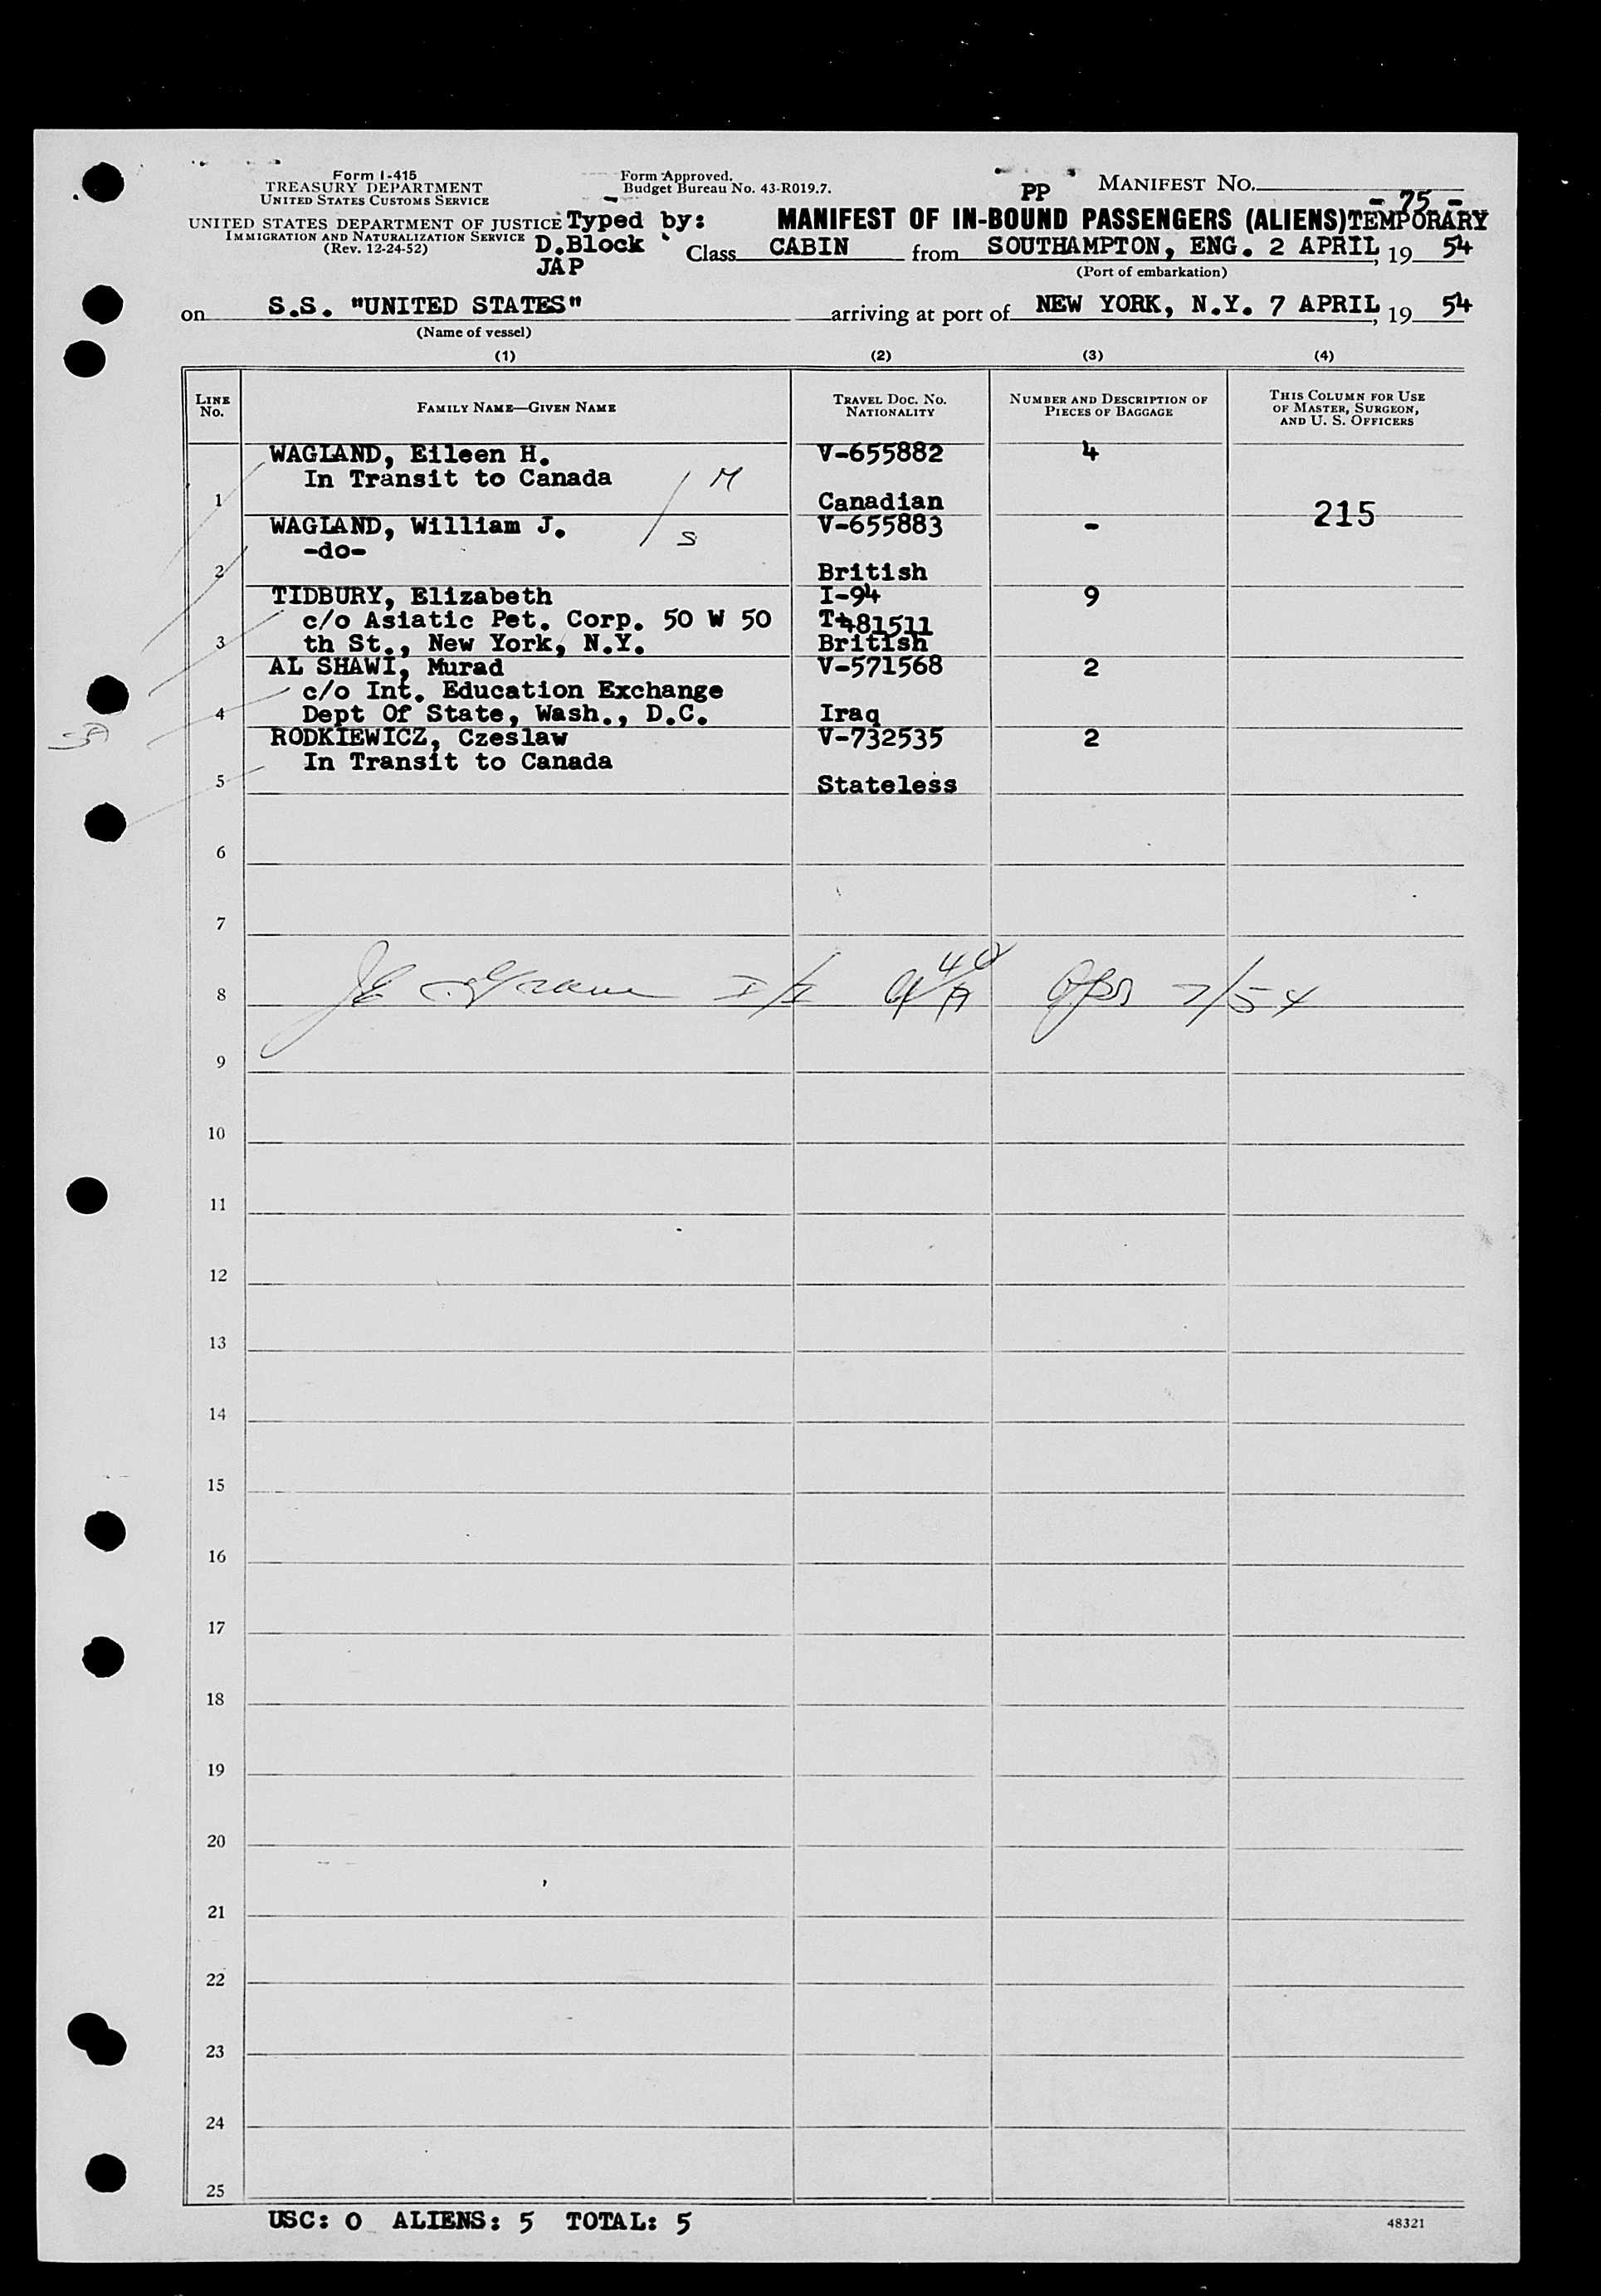 Form I-415
TREASURY DEPARTMENT
UNITED STATES CUSTOMS SERVICE
UNITED STATES DEPARTMENT OF JUSTICE
IMMIGRATION AND NATURALIZATION SERVICE
(Rev. 12-24-52)
Typed by:
D.Block
JAP
Form Approved.
Budget Bureau No. 43-R019.7.
PP
MANIFEST NO.
- 75 -
MANIFEST OF IN-BOUND PASSENGERS (ALIENS) TEMPORARY
Class CABIN from SOUTHAMPTON, ENG. 2 APRIL, 19 54
(Port of embarkation)
on S.S. "UNITED STATES" arriving at port of NEW YORK, N.Y. 7 APRIL, 19 54
(Name of vessel)
(1) (2) (3) (4)
LINE No. FAMILY NAME—GIVEN NAME TRAVEL DOC. NO. NATIONALITY NUMBER AND DESCRIPTION OF PIECES OF BAGGAGE THIS COLUMN FOR USE OF MASTER, SURGEON, AND U. S. OFFICERS
WAGLAND, Eileen H. V-655882 4
In Transit to Canada M
1 Canadian 215
WAGLAND, William J. V-655883 -
-do- S
2 British
TIDBURY, Elizabeth I-94 9
c/o Asiatic Pet. Corp. 50 W 50 T-481511
3 th St., New York, N.Y. British
AL SHAWI, Murad V-571568 2
c/o Int. Education Exchange
4 Dept Of State, Wash., D.C. Iraq
RODKIEWICZ, Czeslaw V-732535 2
In Transit to Canada
5 Stateless
6
7
8
9
10
11
12
13
14
15
16
17
18
19
20
21
22
23
24
25
USC: 0 ALIENS: 5 TOTAL: 5
48321